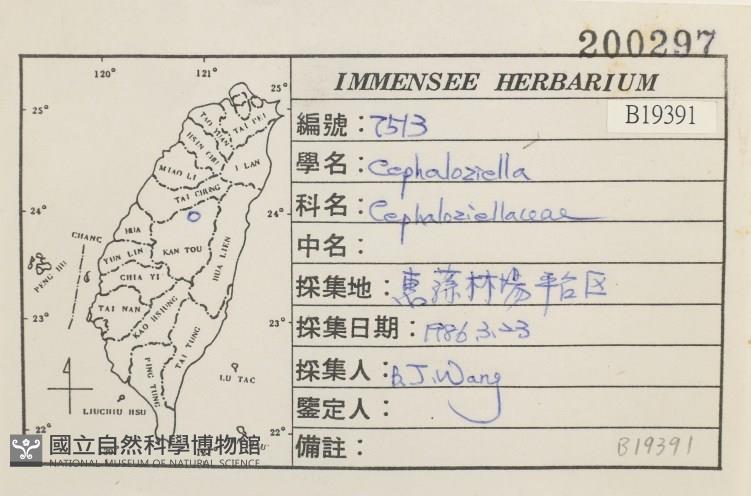 200297
IMMENSEE HERBARIUM
B19391
編號：7513
學名：Cephaloziella
科名：Cephaloziellaceae
中名：
採集地：惠蓀林場平台区
採集日期：1986.3.23
採集人：B.J.Wang
鑒定人：
備註：
B19391
120° 121°
25° 25°
TAO YUAN
TAI PEI
HSIN CHU
I LAN
MIAO LI
TAI CHUNG
24° 24°
CHANG
HUA
PENG HU
YUN LIN
KAN TOU
HUA LIEN
CHIA YI
TAI NAN
KAO HSIUNG
TAI TUNG
23° 23°
PING TUNG
LU TAC
LIUCHIU HSU
22° 22°
國立自然科學博物館
NATIONAL MUSEUM OF NATURAL SCIENCE